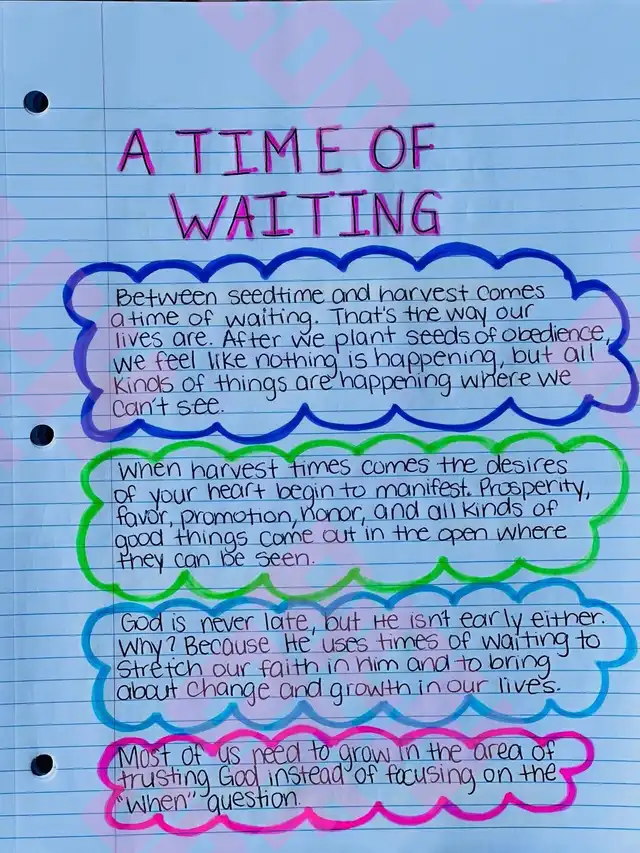 A TIME OF
WAITING
Between seedtime and harvest comes
a time of waiting. That's the way our
lives are. After we plant seeds of obedience,
we feel like nothing is happening, but all
kinds of things are happening where we
can't see.
When harvest times comes the desires
of your heart begin to manifest. Prosperity,
favor, promotion, honor, and all kinds of
good things come out in the open where
they can be seen.
God is never late, but He isn't early either.
Why? Because He uses times of waiting to
stretch our faith in Him and to bring
about change and growth in our lives.
Most of us need to grow in the area of
trusting God instead of focusing on the
"when" question.